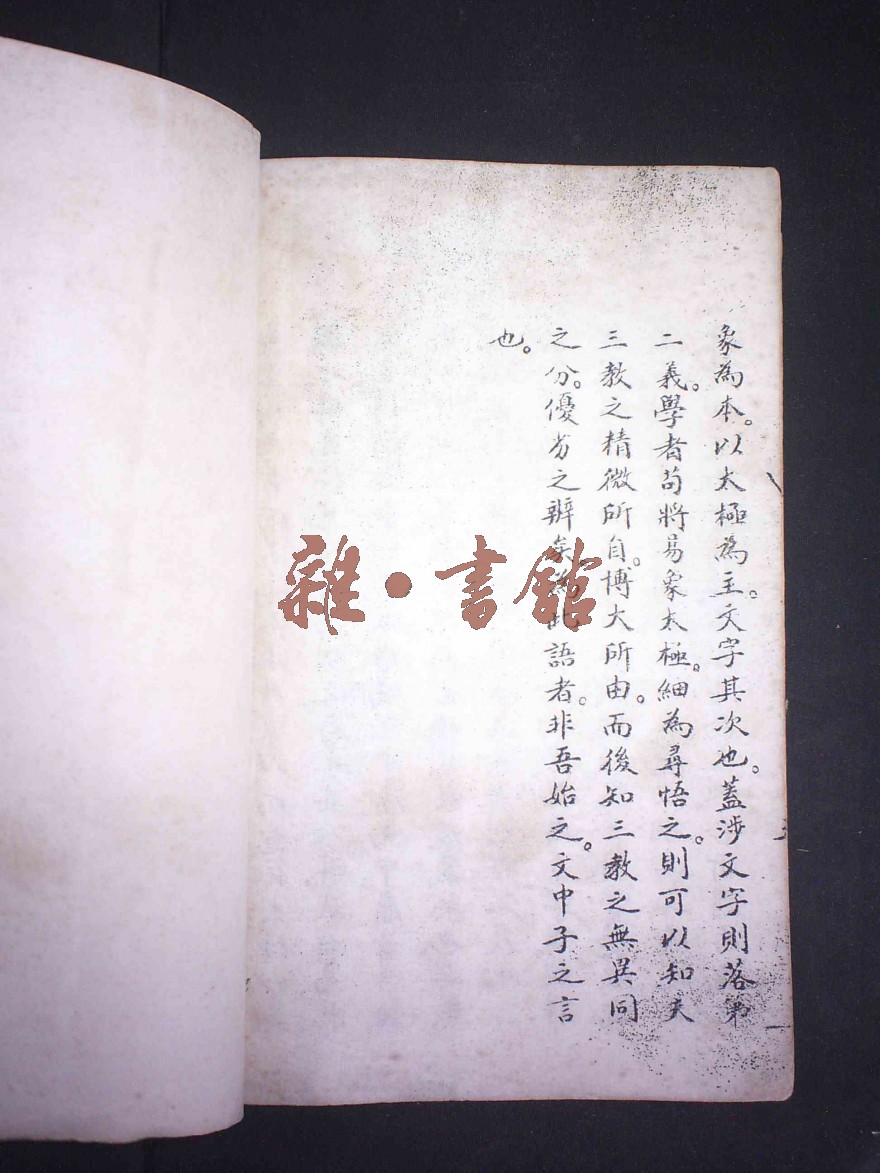 象為本。以太極為主。文字其次也。蓋涉文字則落第
二義。學者苟將易象太極。細為尋悟之。則可以知夫
三教之精微所自。博大所由。而後知三教之無異同
之分。優劣之辨矣。為此語者。非吾始之。文中子之言
也。
雜·書館